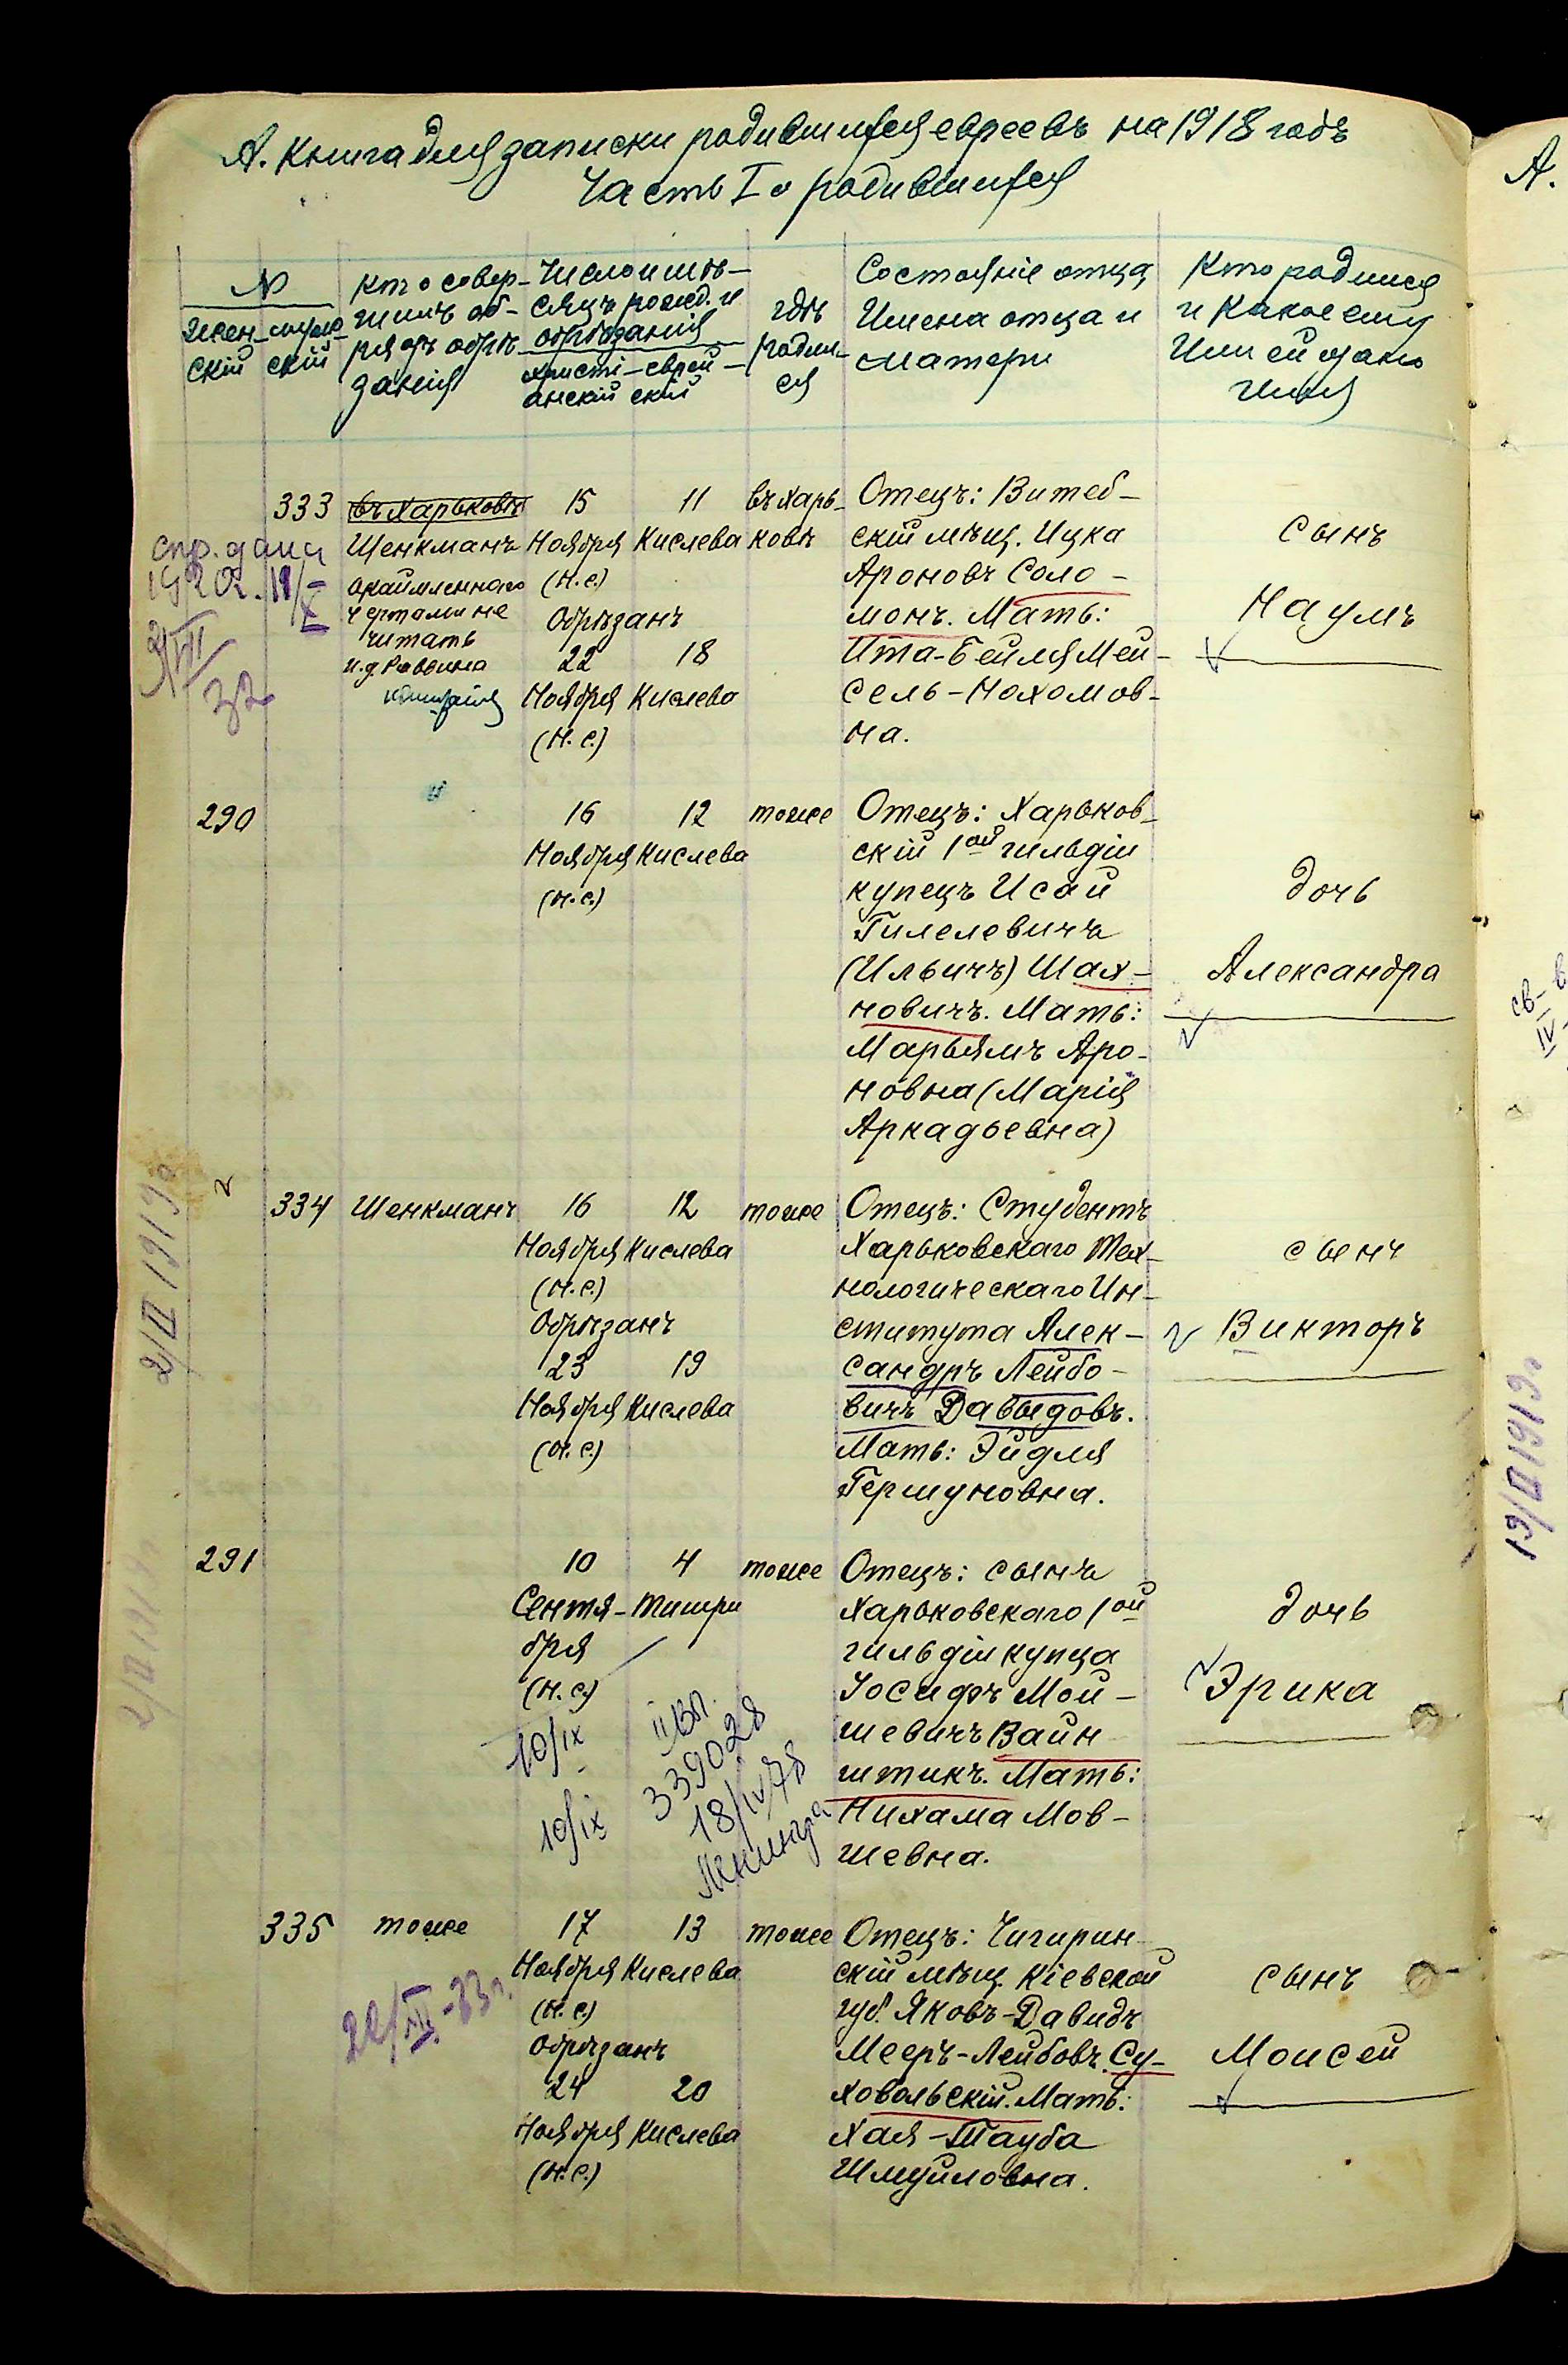 А. Книга для записки родившихся евреевъ на 1918 годъ
Часть I о родившихся
№
Женскій
мужескій
Кто совер-
шилъ об-
рядъ обрѣ-
занія
Число и мѣ-
сяцъ рожд. и
обрѣзанія
Христі-
анскій
еврей-
скій
гдѣ
родил-
ся
Состояніе отца,
Имена отца и
матери
Кто родился
и какое ему
или ей дано
имя
333
въ Харьковѣ
Шенкманъ
окаймленнаго
чертами не
читать
И.д. Раввина
15
Ноября
(н.с.)
11
Кислева
Обрѣзанъ
22
Ноября
(н.с.)
18
Кислева
въ Харь-
ковѣ
Отецъ: Витеб-
скій мѣщ. Ицка
Ароновъ Соло-
монъ. Мать:
Ита-Бейля Мей-
сель-Нохомов-
на.
сынъ
Наумъ
спр. дана
290
16
Ноября
(н.с.)
12
Кислева
тоже
Отецъ: Харьков-
скій 1ой гильдіи
купецъ Исай
Гилелевичъ
(Ильичъ) Шах-
новичъ. Мать:
Марьямъ Аро-
новна (Марія
Аркадьевна)
дочь
Александра
334
Шенкманъ
16
Ноября
(н.с.)
12
Кислева
Обрѣзанъ
23
Ноября
(н.с.)
19
Кислева
тоже
Отецъ: Студентъ
Харьковскаго Тех-
нологическаго Ин-
ститута Алек-
сандръ Лейбо-
вичъ Давыдовъ.
Мать: Эйдля
Гермуновна.
сынъ
Викторъ
2/II 1919г
291
10
Сентя-
бря
(н.с.)
4
Тишри
тоже
Отецъ: сынъ
Харьковскаго 1ой
гильдіи купца
Іосифъ Мой-
шевичъ Вайн-
штикъ. Мать:
Нихама Мов-
шевна.
дочь
Эрика
10/IX
10/IX
339028
18/IV 78
335
тоже
17
Ноября
(н.с.)
13
Кислева
Обрѣзанъ
24
Ноября
(н.с.)
20
Кислева
тоже
Отецъ: Чигирин-
скій мѣщ. Кіевской
губ. Яковъ-Давидъ
Мееръ-Лейбовъ Су-
ховольскій. Мать:
Хая-Тауба
Шмуйловна.
сынъ
Моисей
А.
13/II 1919г